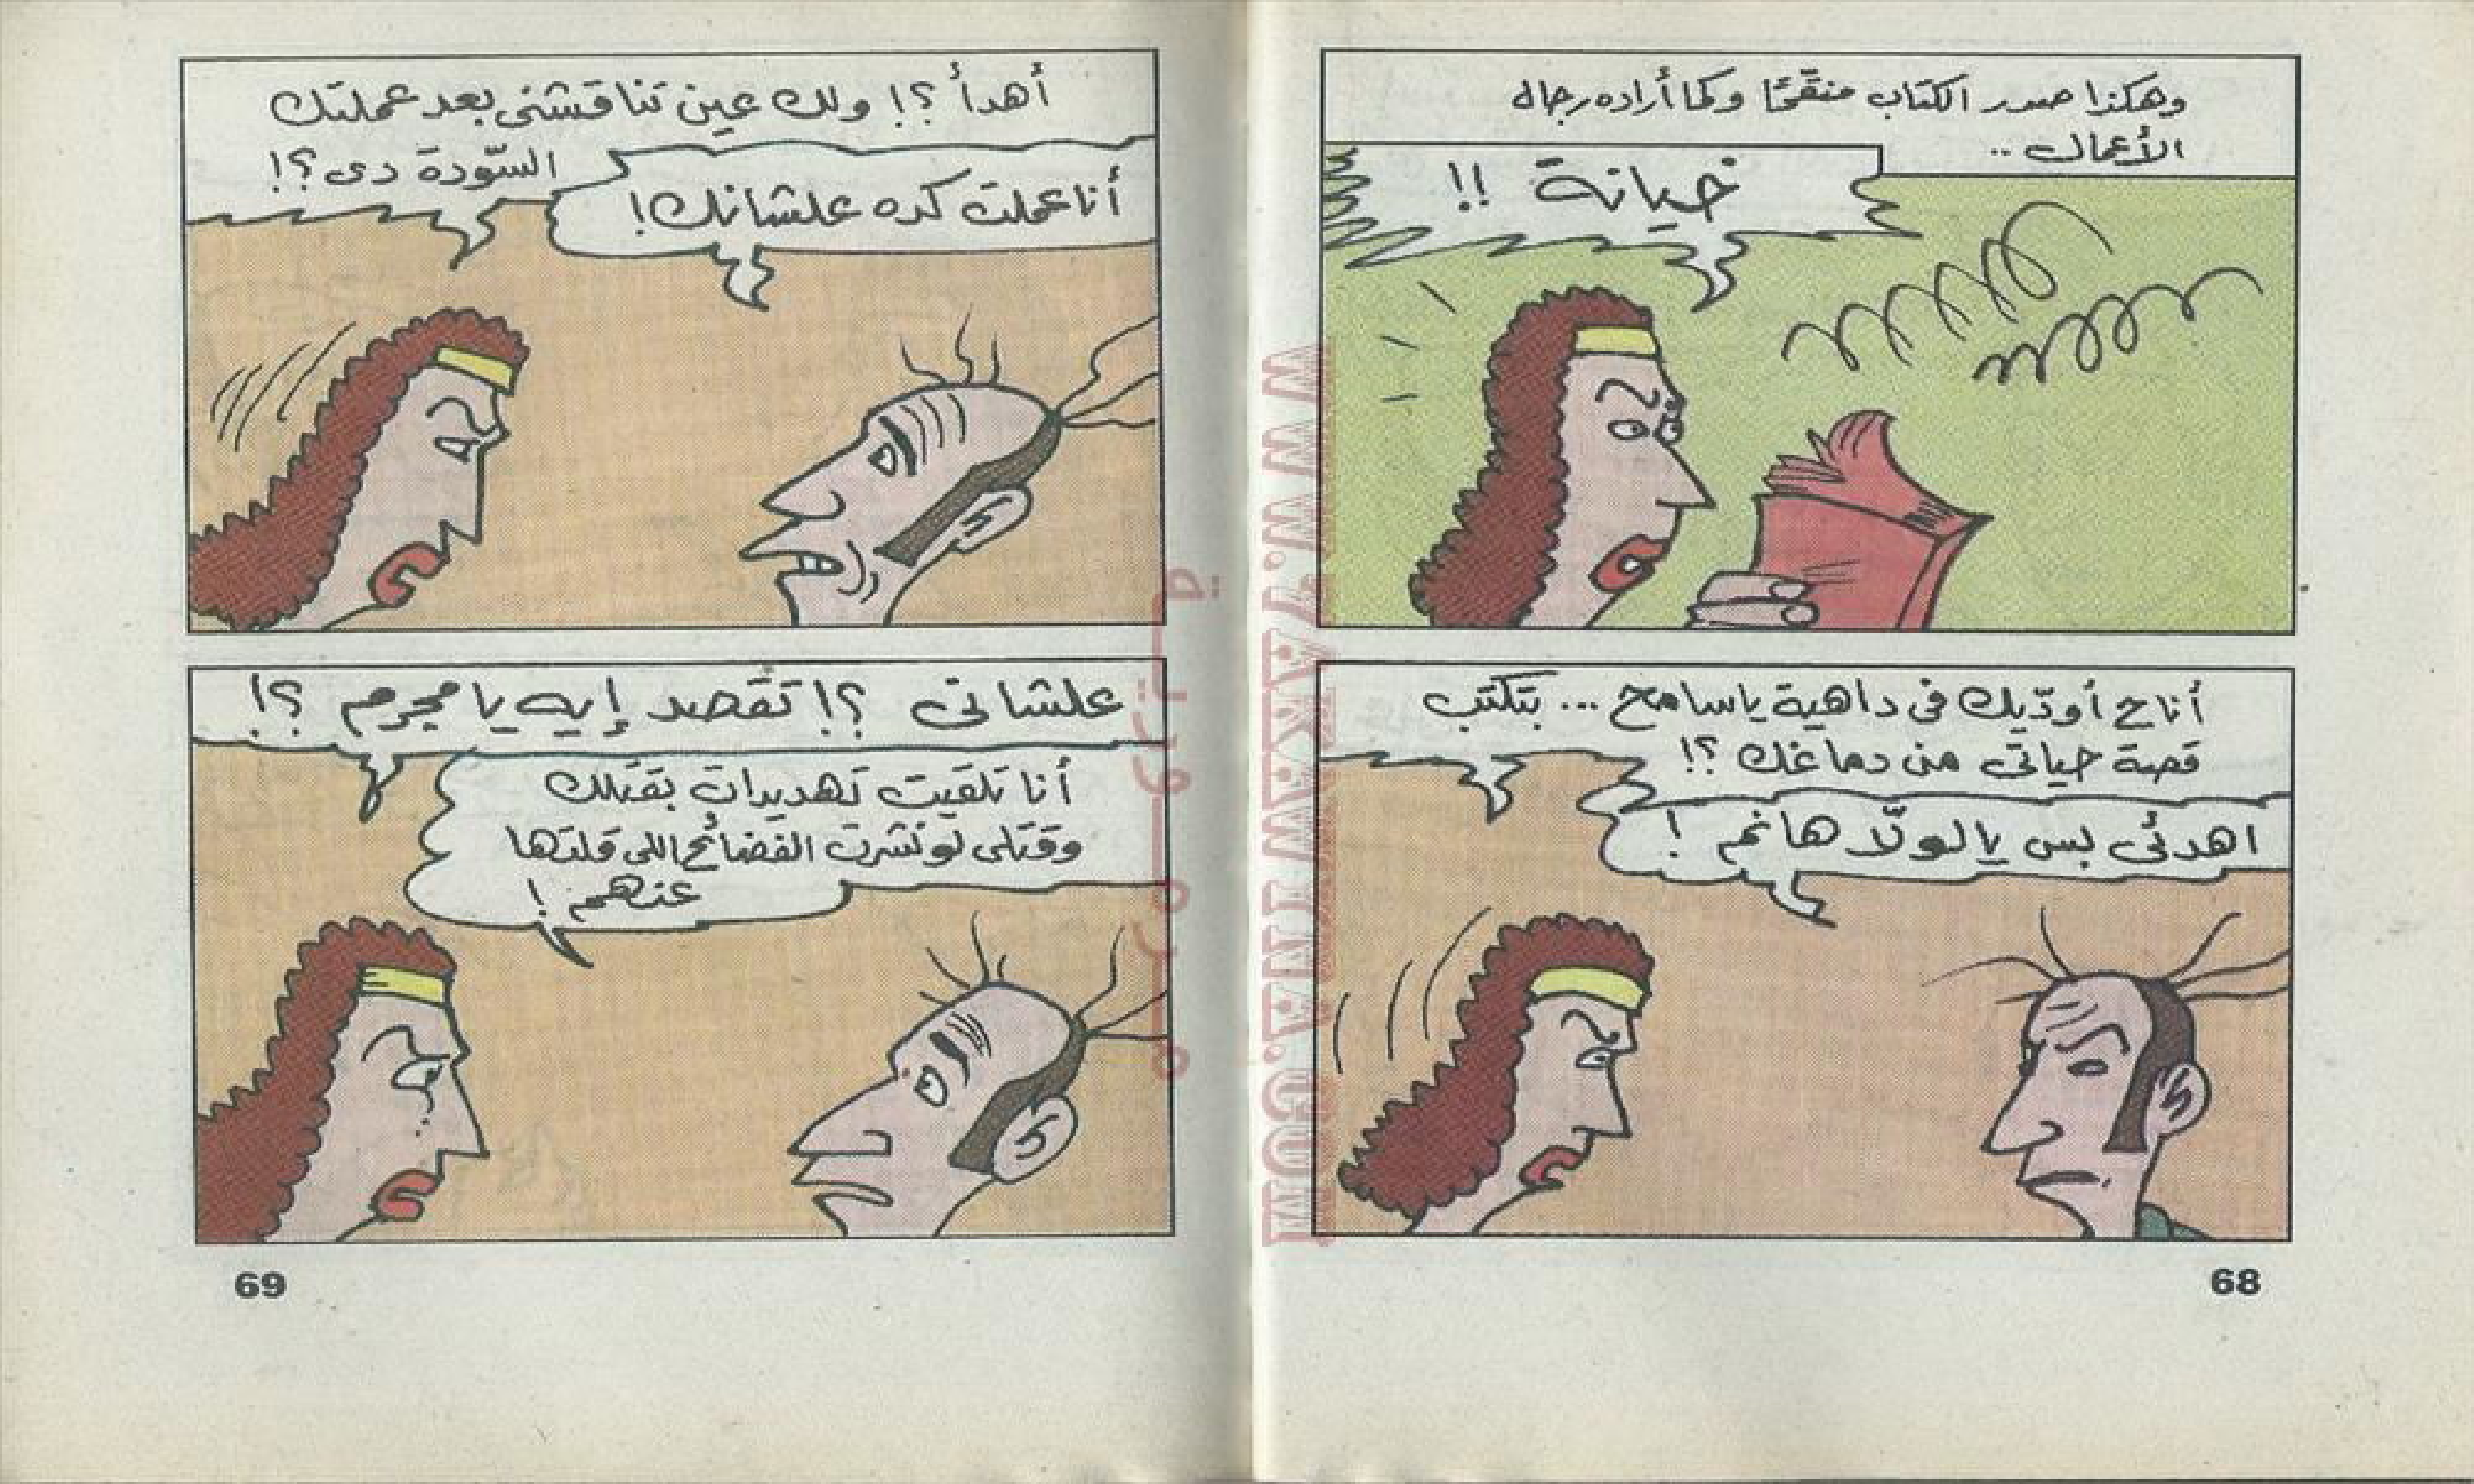 وهكذا صدر الكتاب منقّحًا وكما أراده رجال
الأعمال ..
خيانة !!
أنا ح أودّيك فى داهية ياسامح ... بتكتب
قصة حياتى من دماغك ؟!
اهدئى بس يا لولّا هانم !
68
أهدأ ؟! ولك عين تناقشنى بعد عملتك
السّودة دى ؟!
أنا عملت كده علشانك !
علشانى ؟! تقصد إيه يا مجرم ؟!
أنا تلقيت تهديدات بقتلك
وقتلى لو نشرت الفضائح اللى قلتها
عنهم !
69